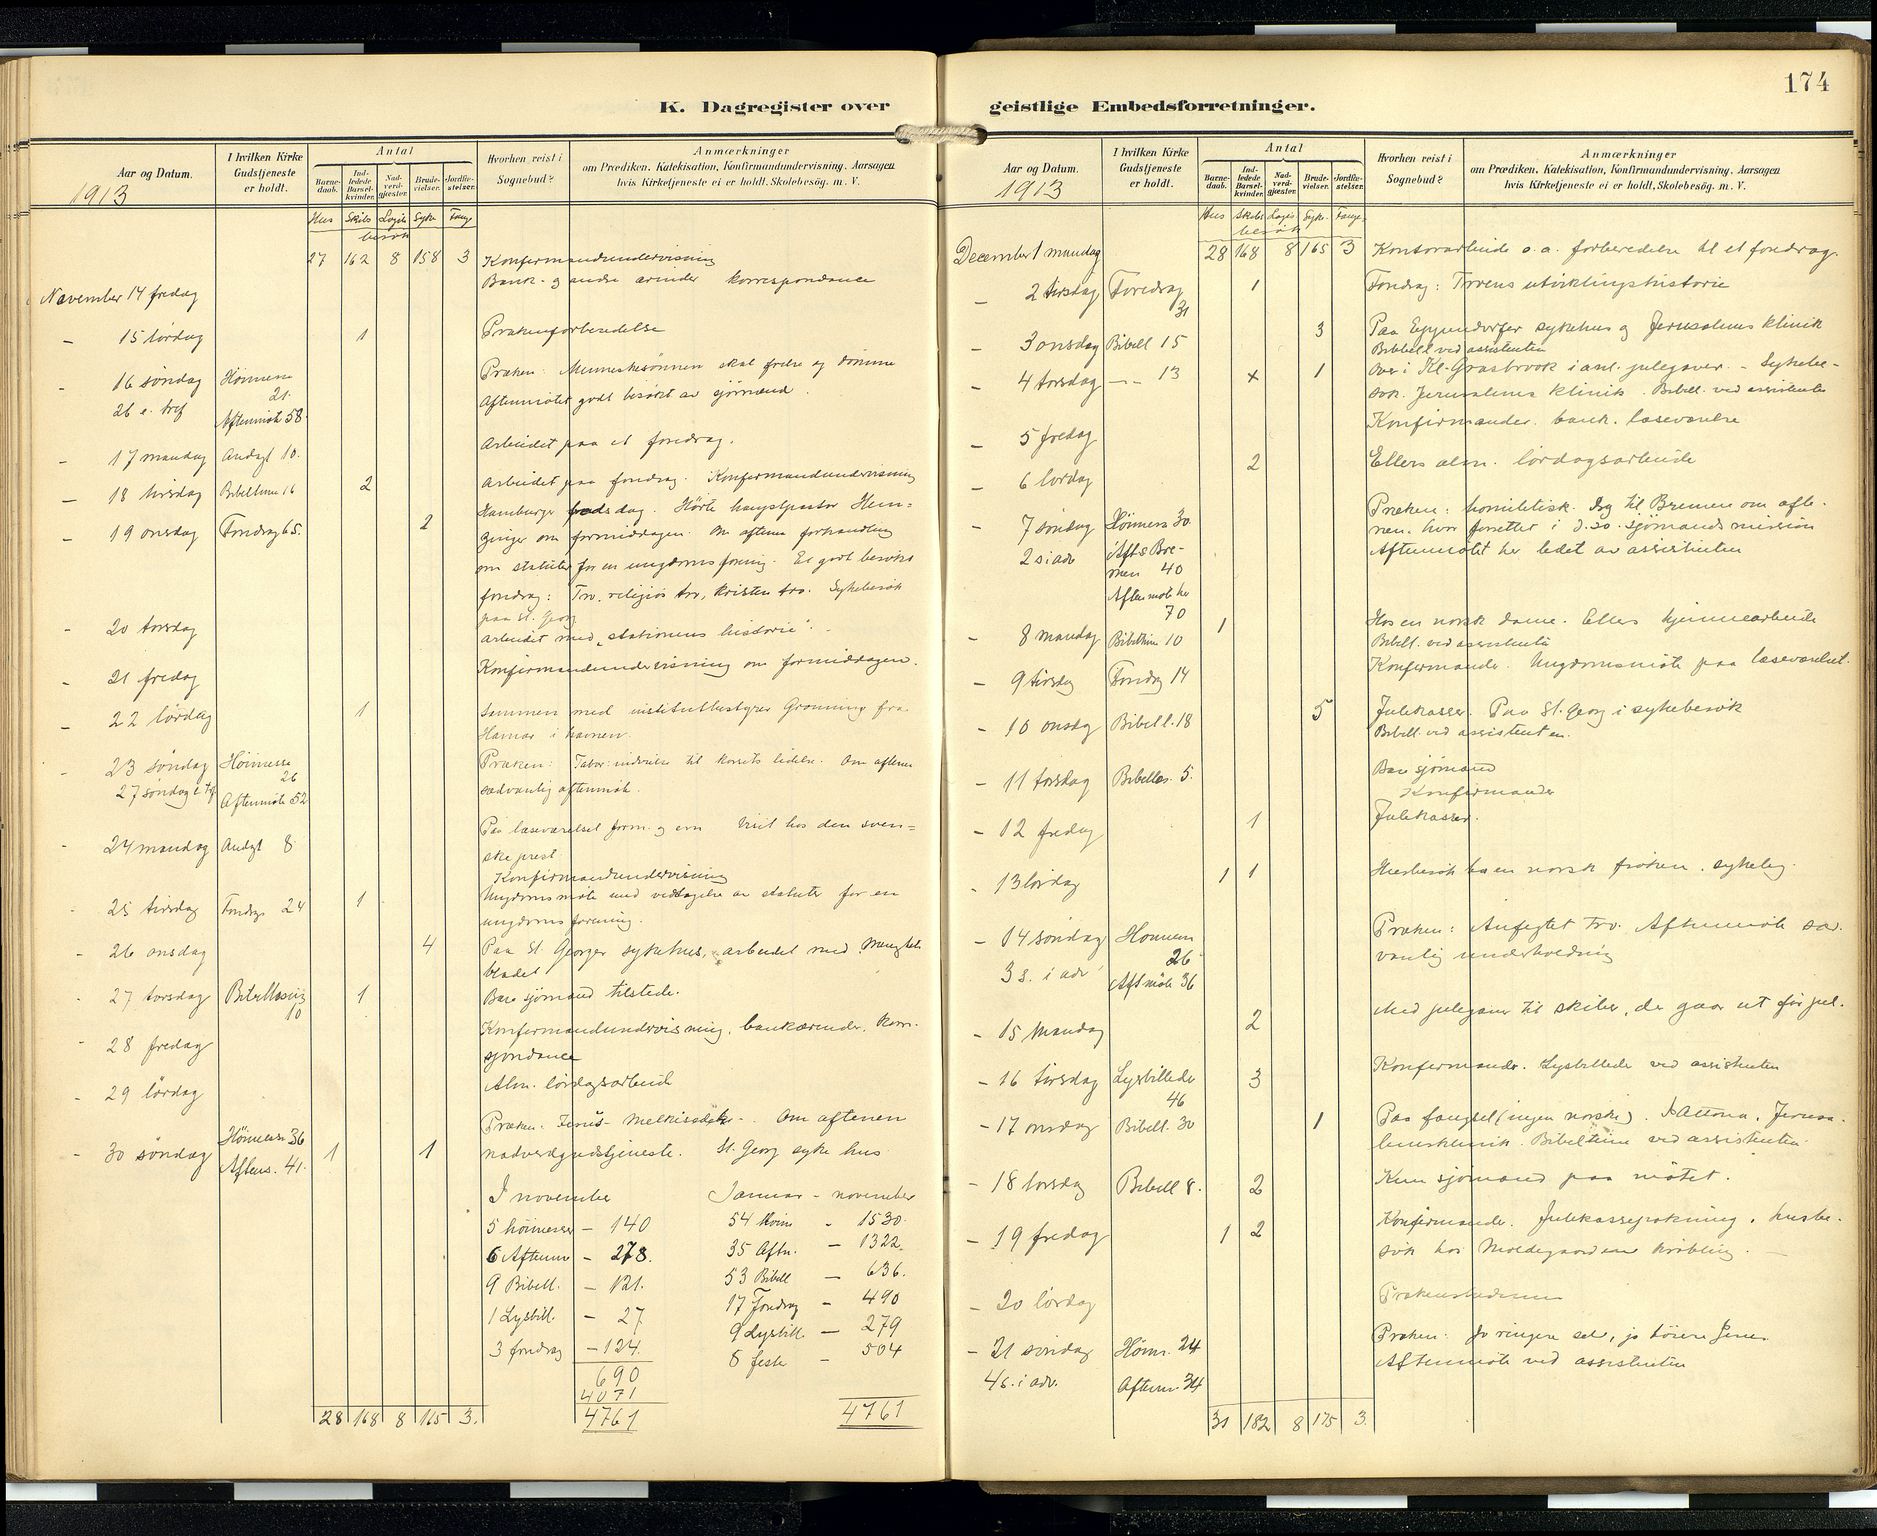 K. Dagregister over
Aar og Datum.
1913
I hvilken Kirke Gudstjeneste er holdt.
Antal
Barne-daab.
Ind-ledede Barsel-kvinder.
Nad-verd-gjæster.
Brude-vielser.
Jordfæ-stelser.
Hvorhen reist i Sognebud?
Anmærkninger
om Prædiken, Katekisation, Konfirmandundervisning, Aarsagen
hvis Kirketjeneste ei er holdt, Skolebesøg. m. V.
Hus Skibs Logis Syke Fange
besøk
27 162 8 158 3 Konfirmandundervisning
Bank- og andre ærinder korrespondance
November 14 fredag
- 15 lørdag 1 Prækenforberedelse
- 16 søndag Høimesse 21. Præken: Menneskesønnen skal frelse og dømme
26 e. tref Aftenmøte 58. Aftenmøtet godt besøkt av sjømænd.
- 17 mandag Andagt 10. Arbeidet paa et foredrag.
- 18 tirsdag Bibeltime 16 2 Arbeidet paa foredrag. Konfirmandundervisning
- 19 onsdag Foredrag 65. 2 Hamburger bodsdag. Hørte hauptpastor
om formiddagen. Om aftenen forhandling
om statuter for en ungdomsforening. Et godt besøkt
foredrag: Tro, religiøs tro, kristen tro. Sykebesøk
paa St. Georg
- 20 torsdag Arbeidet med "stationens historie".
- 21 fredag Konfirmandundervisning om formiddagen.
- 22 lørdag 1 Sammen med institutbestyrer Grønning fra
Hamar i havnen.
- 23 søndag Høimesse 26 Præken: Tabor: indvielse til korsets lidelse. Om aftenen
27 søndag e. tref Aftenmøte 52 sædvanlig aftenmøte.
- 24 mandag Andagt 8 Paa læseværelset form. og em. Visit hos den sven=
ske prest.
Konfirmandundervisning
- 25 tirsdag Foredrag 24 1 Ungdomsmøte med vedtagelse av statuter for en
ungdomsforening.
- 26 onsdag 4 Paa St. Georger sykehus, arbeidet med Menighets
bladet
- 27 torsdag Bibellesning 10 1 Bare sjømænd tilstede.
- 28 fredag Konfirmandundervisning, bankærinder, korre-
spondance
- 29 lørdag Alm. lørdagsarbeide
- 30 søndag Høimesse 36 1 1 Præken. Jesus - Melkisedek -. Om aftenen
Aftens. 41. nadverdgudstjeneste. St. Georg syke hus
I november Januar - november
5 høimesser - 140 54 Høim - 1530.
6 Aftenm - 278. 35 Aftn. - 1322.
9 Bibell. - 121. 53 Bibell - 636.
1 Lysbill. - 27 17 Foredrag - 490
3 foredrag - 124. 9 Lysbill. - 279
690 8 feste - 504
4071
28 168 8 165 3. 4761 4761
174
geistlige Embedsforretninger.
Aar og Datum.
1913
I hvilken Kirke Gudstjeneste er holdt.
Antal
Barne-daab.
Ind-ledede Barsel-kvinder.
Nad-verd-gjæster.
Brude-vielser.
Jordfæ-stelser.
Hvorhen reist i Sognebud?
Anmærkninger
om Prædiken, Katekisation, Konfirmandundervisning, Aarsagen
hvis Kirketjeneste ei er holdt, Skolebesøg. m. V.
Hus Skibs Logis Syke- Fange-
besøk
December 1 mandag 28 168 8 165 3 Kontorarbeide o.a. forberedelse til et foredrag.
- 2 tirsdag Foredrag 31 1 Foredrag: Troens utviklingshistorie
- 3 onsdag Bibell 15 3 Paa Eppendorfer sykehus og Jerusalems klinik
Bibell ved assistenten
- 4 torsdag -"- 13 x 1 Over i Kl. Grasbrook i anl. julegaver. - Sykebe-
søk. Jerusalems klinik. Bibell. ved assistenten
- 5 fredag Konfirmander. bank. læseværelse
- 6 lørdag 2 Ellers alm. lørdagsarbeide
- 7 søndag Høimess 30. Præken: homiletisk. Drog til Bremen om afte-
2 s i adv Afts Bremen 40 nen, hvor sjømandsmission
Aftenmøte her 70 Aftenmøtet her ledet av assistenten
- 8 mandag Bibeltime 10 1 Hos en norsk dame. Ellers hjemmearbeide
Bibell. ved assistenten
- 9 tirsdag Foredrag 14 Konfirmander. Ungdomsmøte paa læseværelset.
- 10 onsdag Bibell. 18 5 Julekasser. Paa St. Georg i sykebesøk
Bibell. ved assistenten.
- 11 torsdag Bibelles. 5. Bare sjømænd
Konfirmander
- 12 fredag 1 Julekasser.
- 13 lørdag 1 1 Husbesøk hos en norsk frøken, sykelig.
- 14 søndag Høimess 26 Præken: Anfegtet tro. Aftenmøte sæd-
3 s. i adv Aftmøte 36 vanlig underholdning
- 15 mandag 2 Med julegaver til skiber, der gaar ut før jul.
- 16 tirsdag Lysbilleder 46 3 Konfirmander. Lysbilleder ved assistenten
- 17 onsdag Bibell. 30 1 Paa fængsel (ingen norske) i Altona, Jerusa-
lemsklinik. Bibeltime ved assistenten.
- 18 torsdag Bibell 8. 2 Kun sjømænd paa møtet.
- 19 fredag 1 2 Konfirmander. Julekassepakning, husbe-
søk hos
- 20 lørdag
- 21 søndag Høim. 24 Præken: Jo ringere selv, jo større Jesus
4 s. i adv. Aftenm. 34 Aftenmøte ved assistenten
31 182 8 175 3.